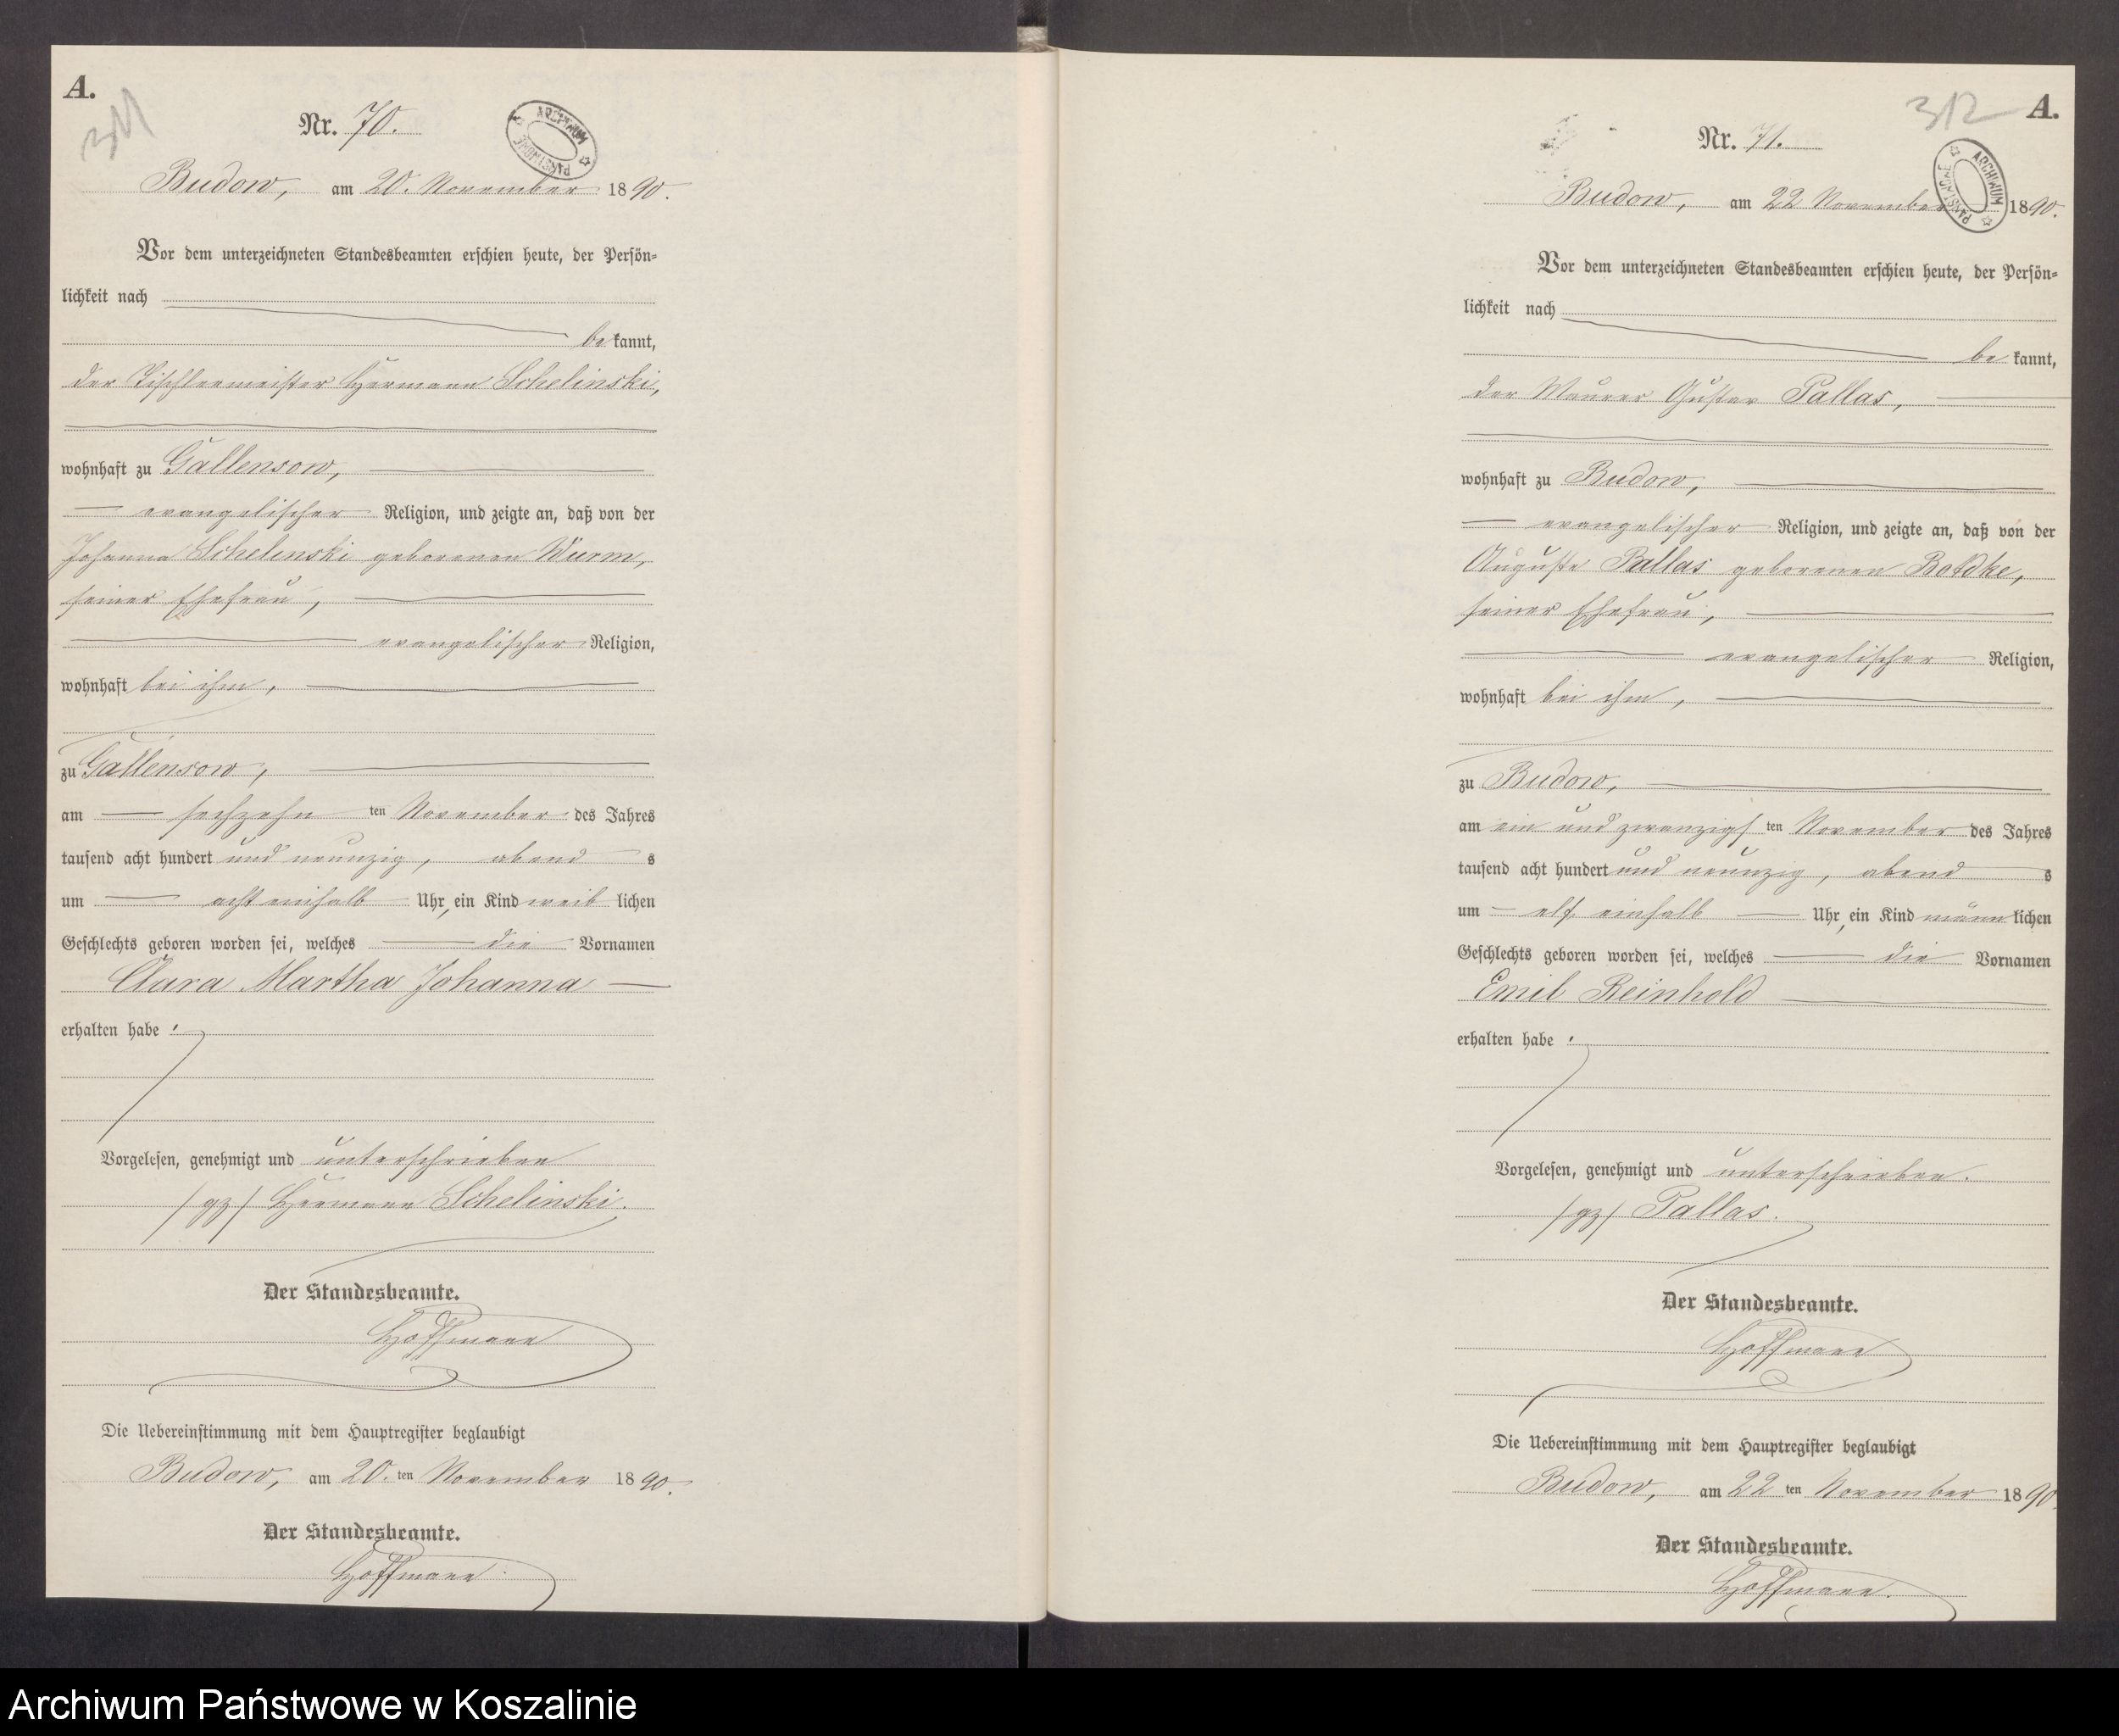 A.
311
Nr. 70.
ARCHIWUM PAŃSTWOWE
Budow, am 20. November 1890.
Vor dem unterzeichneten Standesbeamten erschien heute, der Persön-
lichkeit nach
be kannt,
der Tischlermeister Hermann Schelinski,
wohnhaft zu Gallensow,
evangelischer Religion, und zeigte an, daß von der
Johanna Schelinski geborenen Wurm,
seiner Ehefrau,
evangelischer Religion,
wohnhaft bei ihm,
zu Gallensow,
am sechzehn ten November des Jahres
tausend acht hundert und neunzig, abend s
um acht einhalb Uhr, ein Kind weib lichen
Geschlechts geboren worden sei, welches die Vornamen
Clara Martha Johanna
erhalten habe.
Vorgelesen, genehmigt und unterschrieben
/gz/ Hermann Schelinski.
Der Standesbeamte.
Hoffmann
Die Uebereinstimmung mit dem Hauptregister beglaubigt
Budow, am 20. ten November 1890.
Der Standesbeamte.
Hoffmann.
312
A.
Nr. 71.
ARCHIWUM PAŃSTWOWE
Budow, am 22 November 1890.
Vor dem unterzeichneten Standesbeamten erschien heute, der Persön-
lichkeit nach
be kannt,
der Maurer Gustav Pallas,
wohnhaft zu Budow,
evangelischer Religion, und zeigte an, daß von der
Auguste Pallas geborenen Botdke,
seiner Ehefrau,
evangelischer Religion,
wohnhaft bei ihm,
zu Budow,
am ein und zwanzigs ten November des Jahres
tausend acht hundert und neunzig, abend s
um elf einhalb Uhr, ein Kind männ lichen
Geschlechts geboren worden sei, welches die Vornamen
Emil Reinhold
erhalten habe.
Vorgelesen, genehmigt und unterschrieben.
/gz/ Pallas.
Der Standesbeamte.
Hoffmann
Die Uebereinstimmung mit dem Hauptregister beglaubigt
Budow, am 22 ten November 1890.
Der Standesbeamte.
Hoffmann.
Archiwum Państwowe w Koszalinie